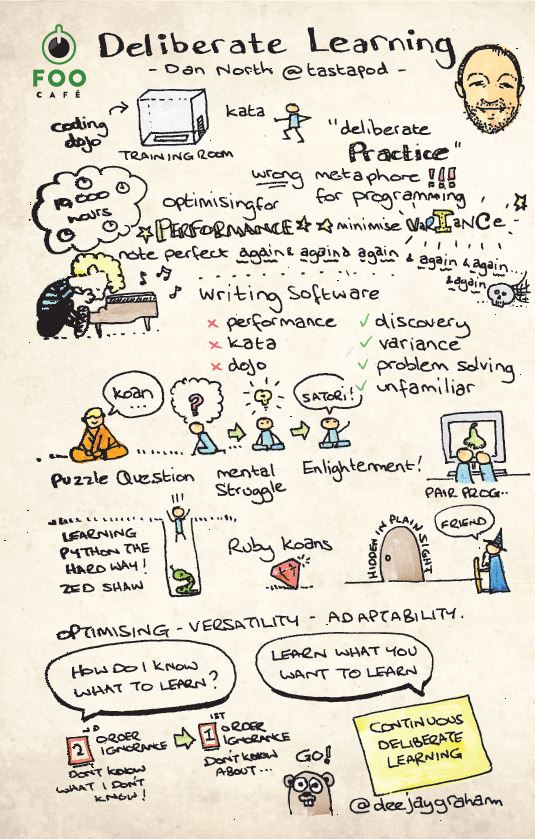 FOO
CAFÉ
Deliberate Learning
- Dan North @tastapod -
coding
dojo
TRAINING ROOM
kata
"deliberate
Practice"
wrong metaphore !!!
for programming
10 000
hours
optimising for
PERFORMANCE
minimise VaRIaNCe
note perfect again & again & again & again & again...
& again
Writing Software
x performance
✓ discovery
x kata
✓ variance
x dojo
✓ problem solving
✓ unfamiliar
koan
...
?
?
SATORI!
Puzzle Question
mental
Struggle
Enlightenment!
PAIR PROG..
!!!
LEARNING
PYTHON THE
HARD WAY!
ZED SHAW
Ruby Koans
HIDDEN IN PLAIN SIGHT
FRIEND
OPTIMISING - VERSATILITY - ADAPTABILITY.
HOW DO I KNOW
WHAT TO LEARN?
LEARN WHAT YOU
WANT TO LEARN
2 ND ORDER
IGNORANCE
DON'T KNOW
WHAT I DON'T
KNOW!
1 1ST ORDER
IGNORANCE
DON'T KNOW
ABOUT...
GO!
CONTINUOUS
DELIBERATE
LEARNING
@deejaygraham